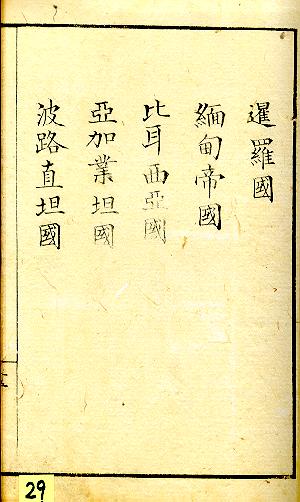 暹羅國
緬甸帝國
比耳西亞國
亞加業坦國
波路直坦國
29